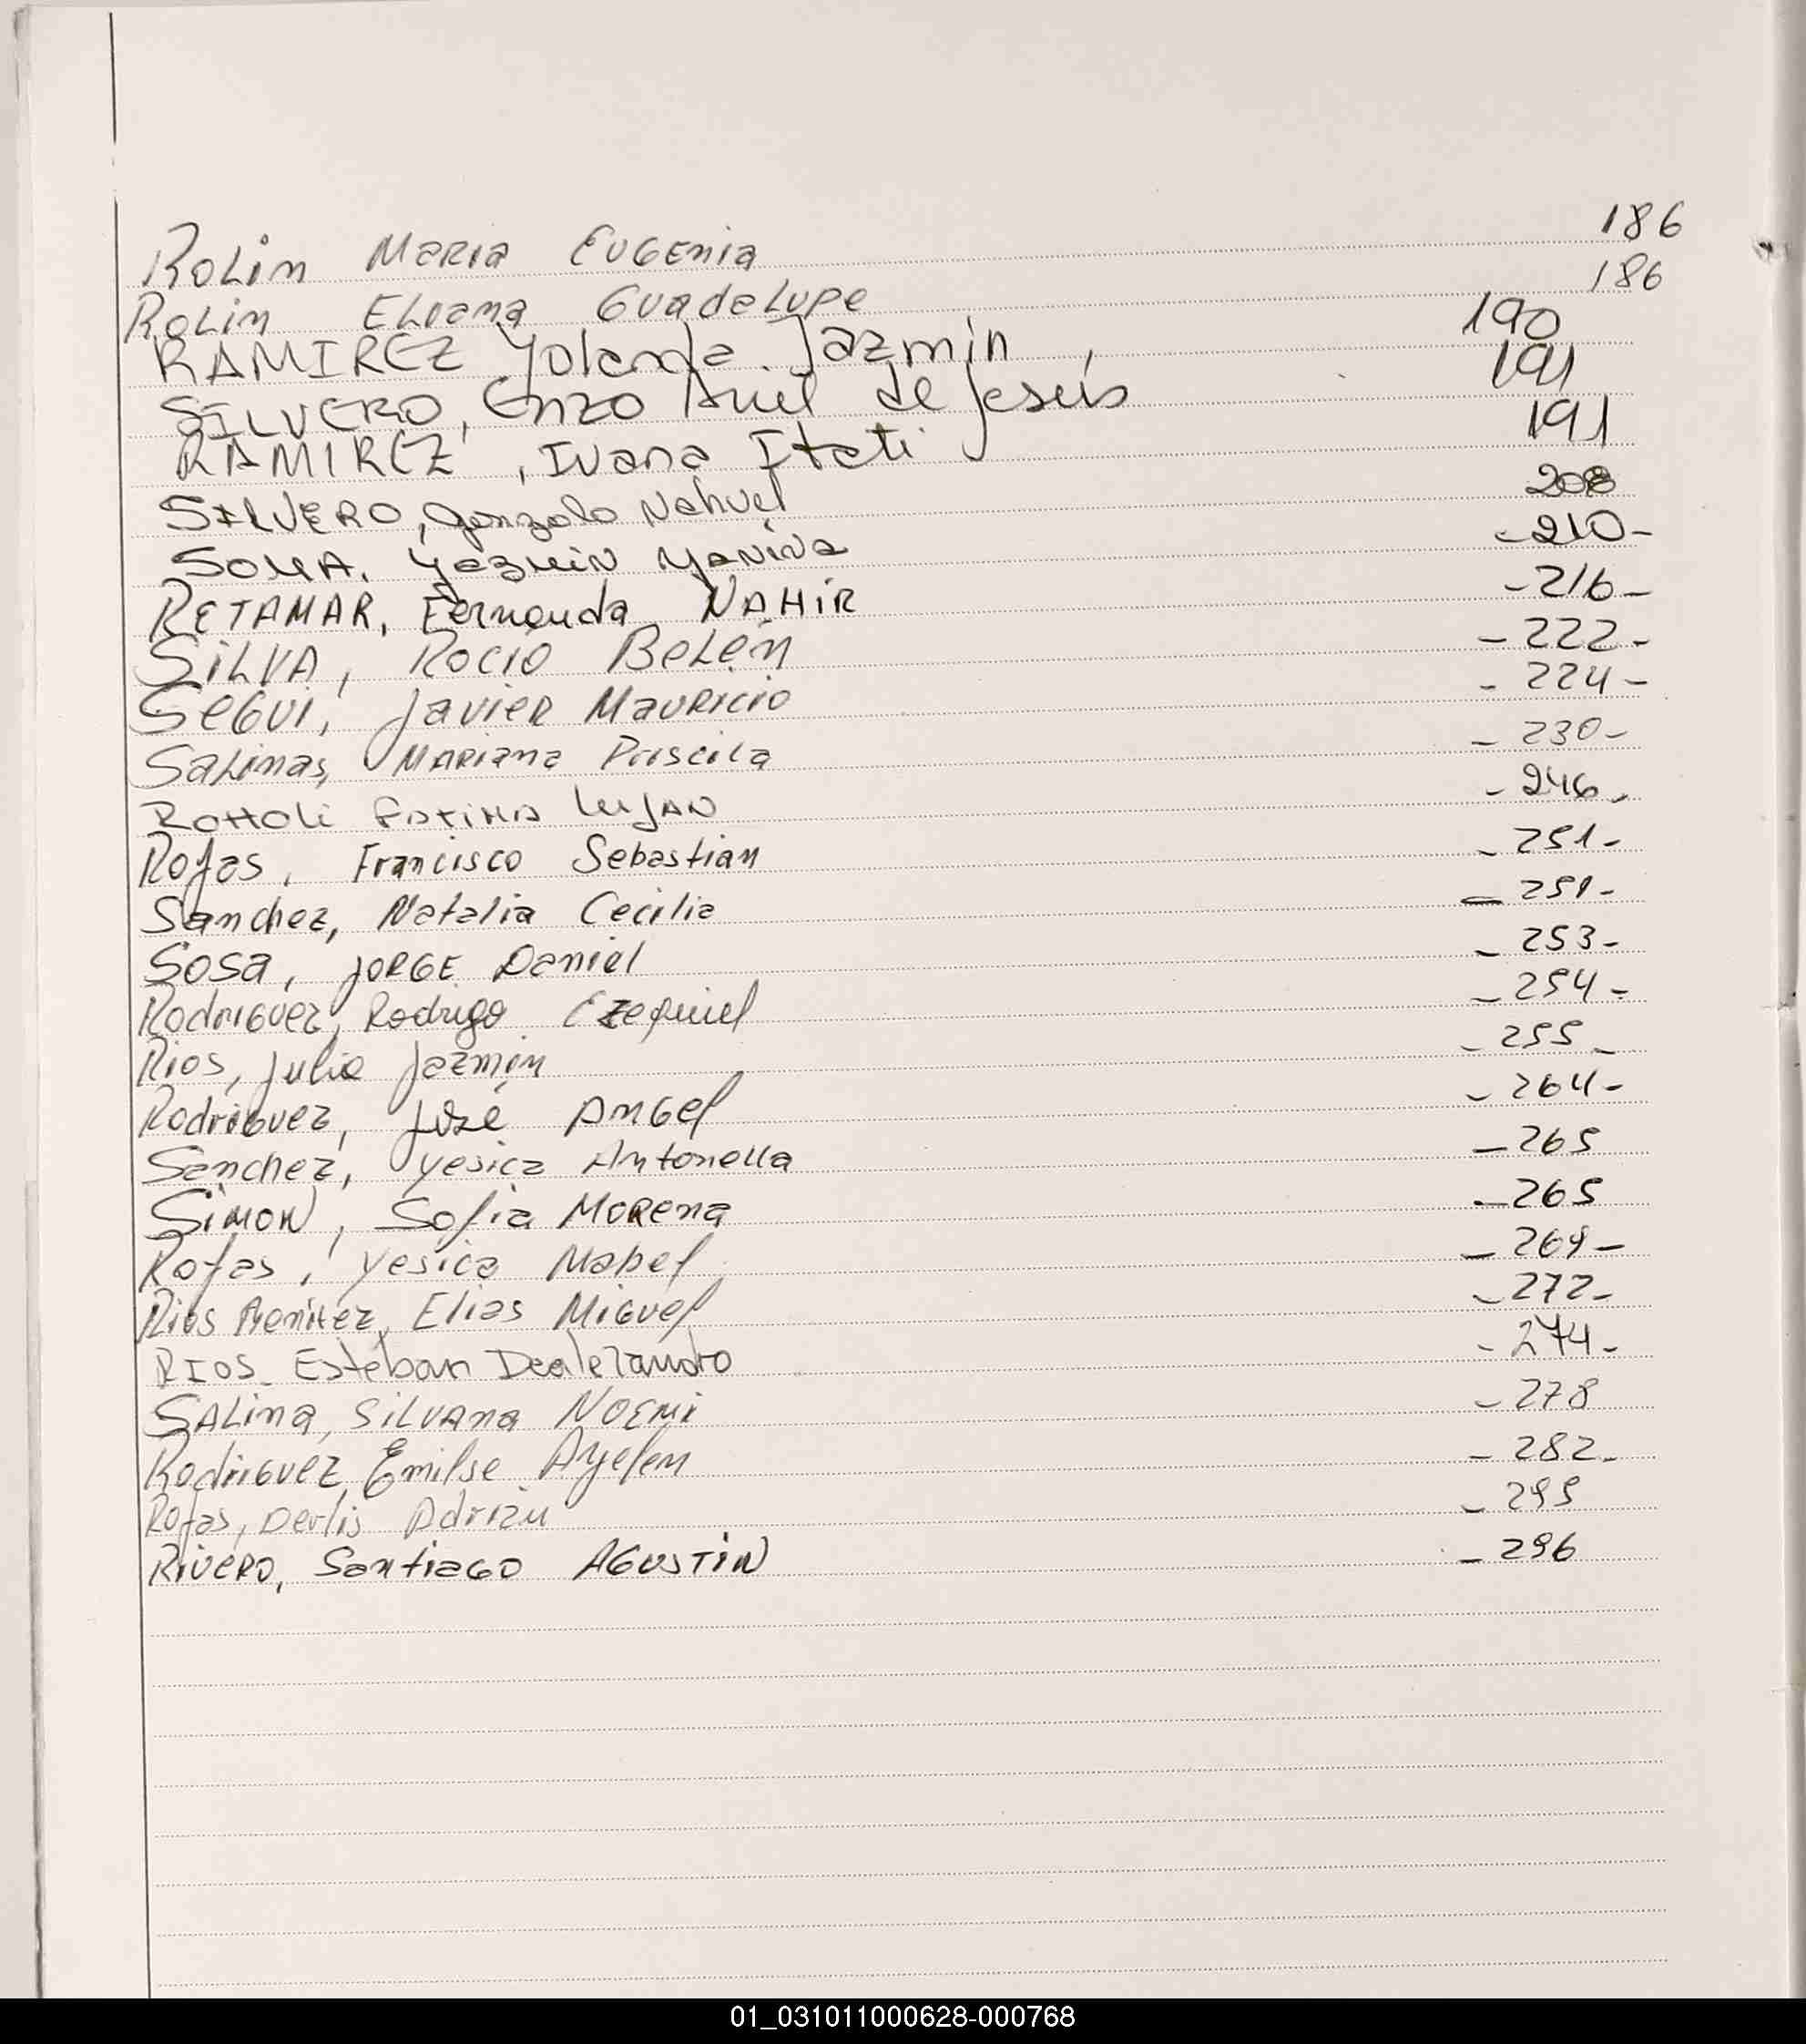 Rolin Maria Eugenia 186
Rolin Eliana Guadelupe 186
RAMIREZ Yolanda Jazmin, 190
SILVERO, Enzo Ariel de Jesús 191
RAMIREZ, Ivana Itati 191
SILVERO, Gonzalo Nahuel 208
SOMA, Yazmin Yanina -210-
RETAMAR, Fernanda NAHIR -216-
SILVA, Rocio Belén -222-
Segui, Javier Mauricio -224-
Salinas, Mariana Priscila -230-
Rottoli Fatima Lujan -246-
Rojas, Francisco Sebastian -251-
Sanchez, Natalia Cecilia -251-
Sosa, Jorge Daniel -253-
Rodriguez, Rodrigo Ezequiel -254-
Rios, Julia Jazmin -255-
Rodriguez, José Angel -264-
Sanchez, Yesica Antonella -265
Simon, Sofia Morena -265
Rojas, Yesica Mabel -269-
Rios Benitez, Elias Miguel -272-
RIOS Esteban -274-
Salina, Silvana Noemi -278
Rodriguez, Emilse Ayelen -282-
Rojas, Derlis -295
Rivero, Santiago Agustin -296
01_031011000628-000768